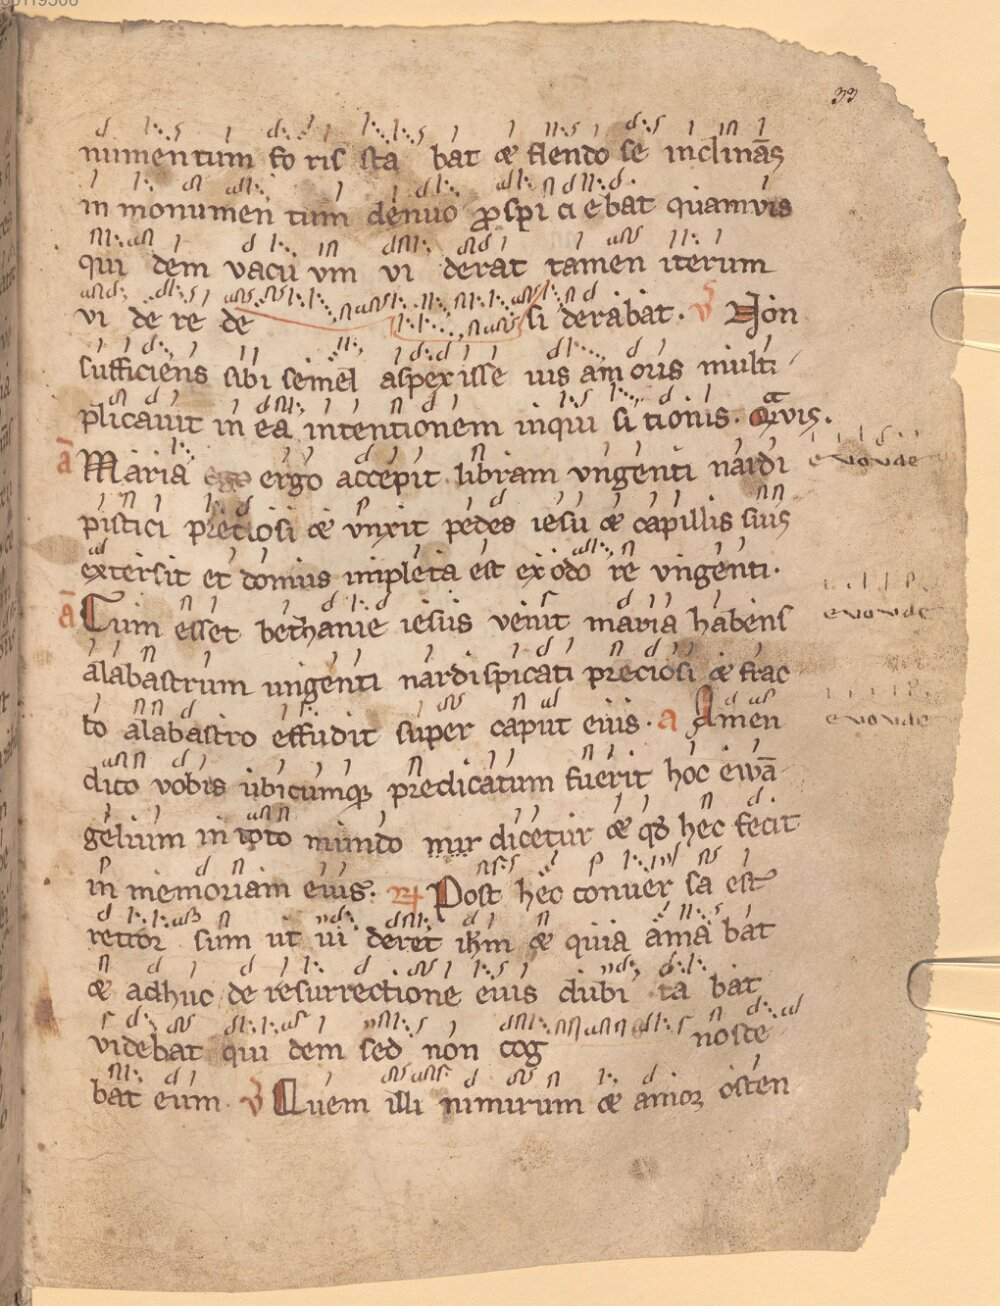 33
numentum fo ris sta bat & flendo se inclinās
in monumen tum denuo ꝓspi ci e bat quamvis
qui dem vacu um vi derat tamen iterum
vi de re de si derabat. V Non
sufficiens sibi semel aspexisse uis amoris multi
plicavit in ea intentionem inqui si tionis. Qvis.
ā Maria ergo accepit libram ungenti nardi evovae
pistici preciosi & unxit pedes iesu & capillis suis
extersit et domus impleta est ex odo re ungenti.
ā Cum esset bethanie iesus venit maria habens evovae
alabastrum ungenti nardi spicati preciosi & frac
to alabastro effudit super caput eius. a Amen evovae
dico vobis ubicumq; predicatum fuerit hoc ewā
gelium in toto mundo dicetur & qđ hec fecit
in memoriam eius. R Post hec conver sa est
retror sum ut vi deret ihm & quia ama bat
& adhuc de resurrectione eius dubi ta bat
videbat qui dem sed non cog nosce
bat eum. V Quem illi nimirum & amor osten